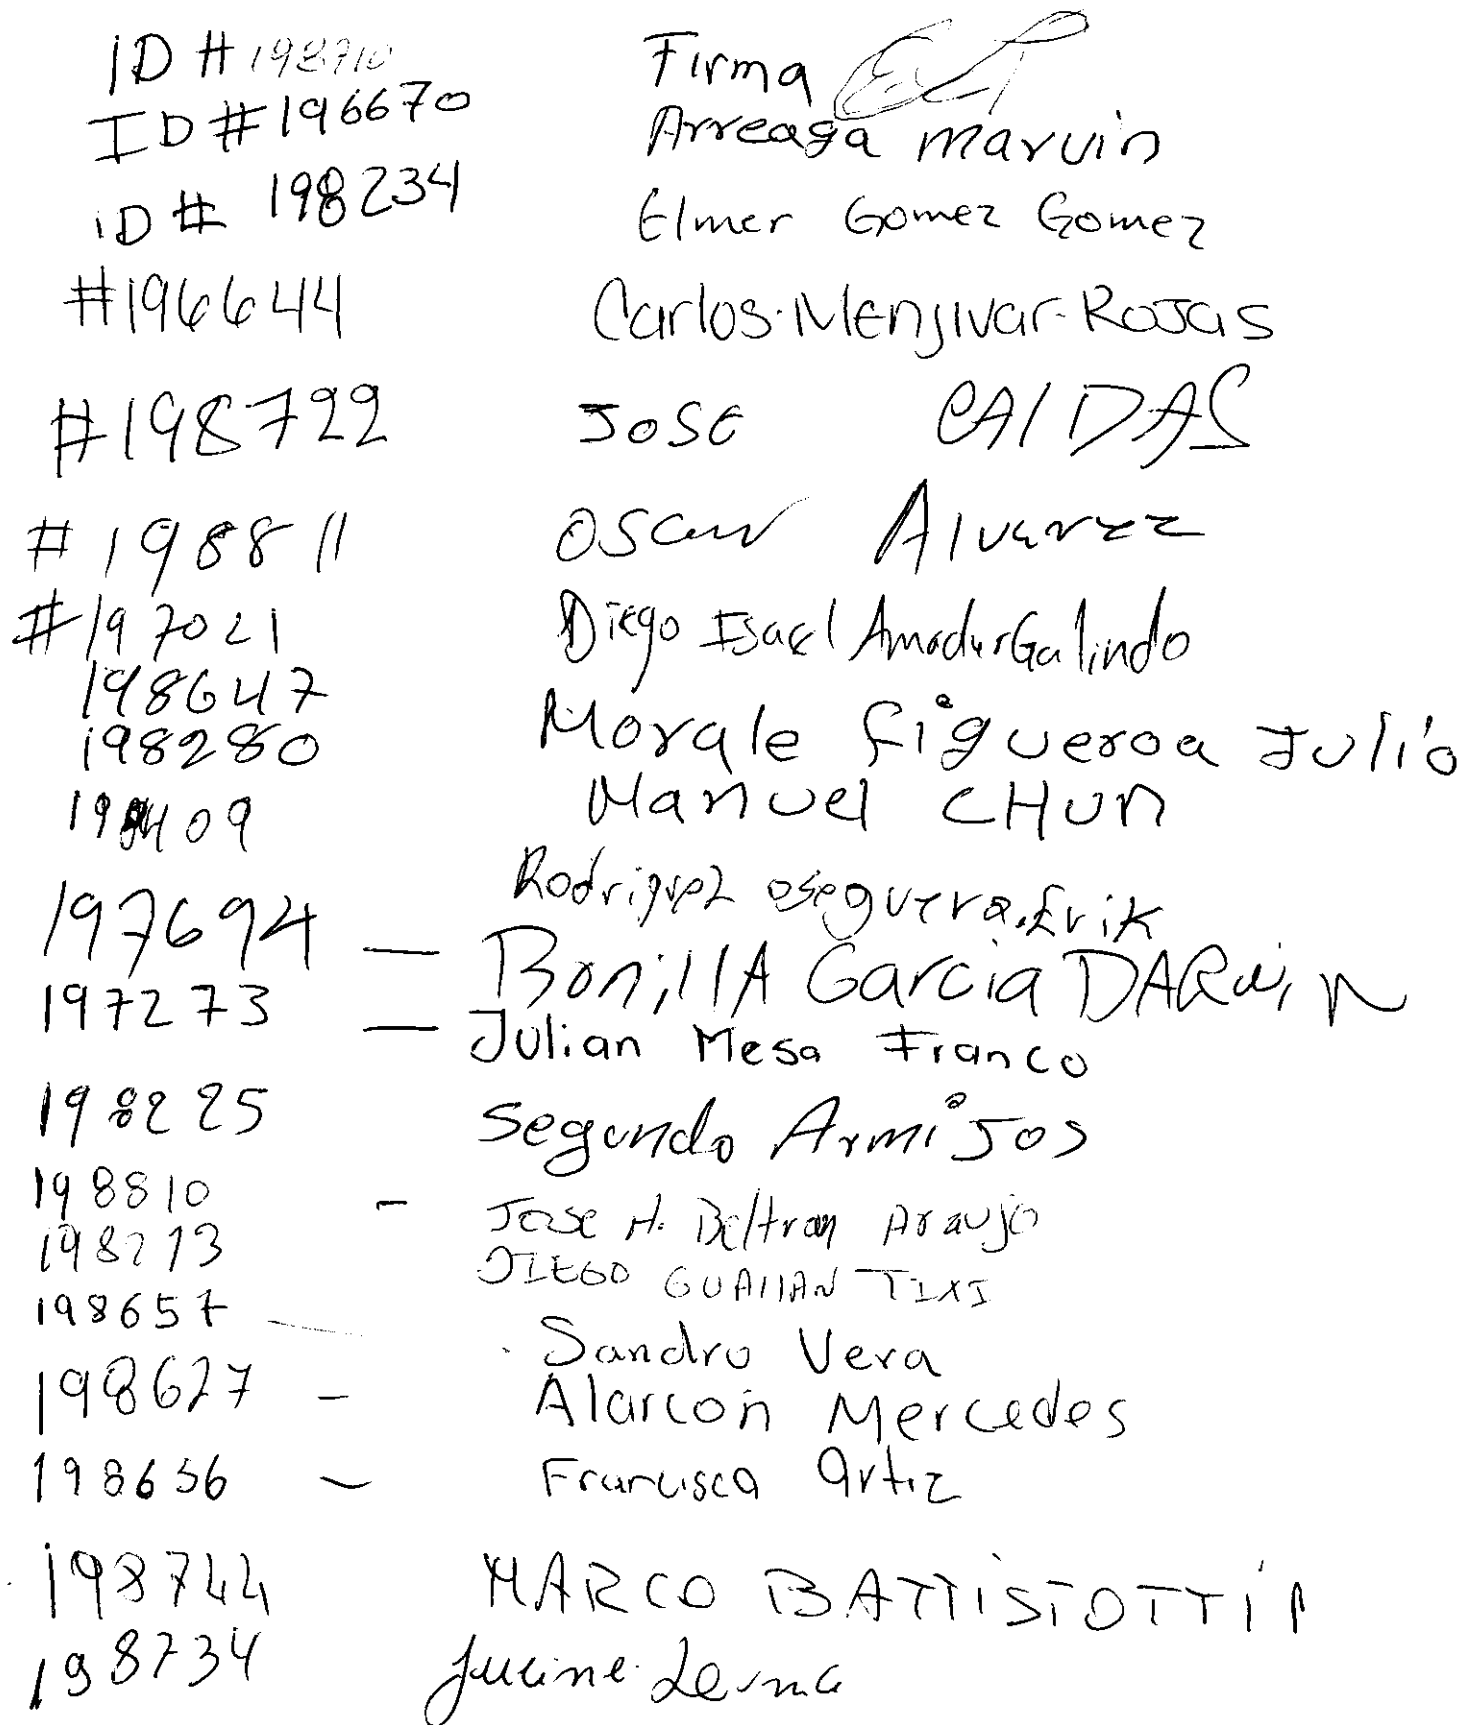 ID # 198710 Firma
ID # 196670 Arreaga marvin
iD # 198234 Elmer Gomez Gomez
#196644 Carlos.Menjivar-Rojas
#198722 JOSE CAlDAS
#198811 OSCar Alvarez
#197021 Diego Isael Amador Galindo
198647 Morale figueroa Julio
198280 Manuel CHUn
09 Rodriguez oseguera.Erik
197694 — BonillA Garcia DARwin
197273 — Julian Mesa Franco
198225 Segundo Armijos
198810 - Jose H. Beltran Araujo
198273 DIEGO GUAllAN TIXI
198657 - Sandro Vera
198627 - Alarcon Mercedes
198656 - Francisca Ortiz
198744 MARCO BATTiSTOTTi
198734